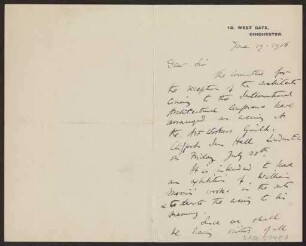 12, WEST GATE,
CHICHESTER.
June 19. 1906
Dear Sir
The Committee for
the reception of the architects
coming to the International
Architectural Congress have
arranged an evening at
the Art Workers Guild,
Cliffords Inn Hall,
on Friday July 20th.
It is intended to have
an exhibition of William
Morris' works in the arts
& to devote the evening to his
memory.
Since we shall
be having visitors of all